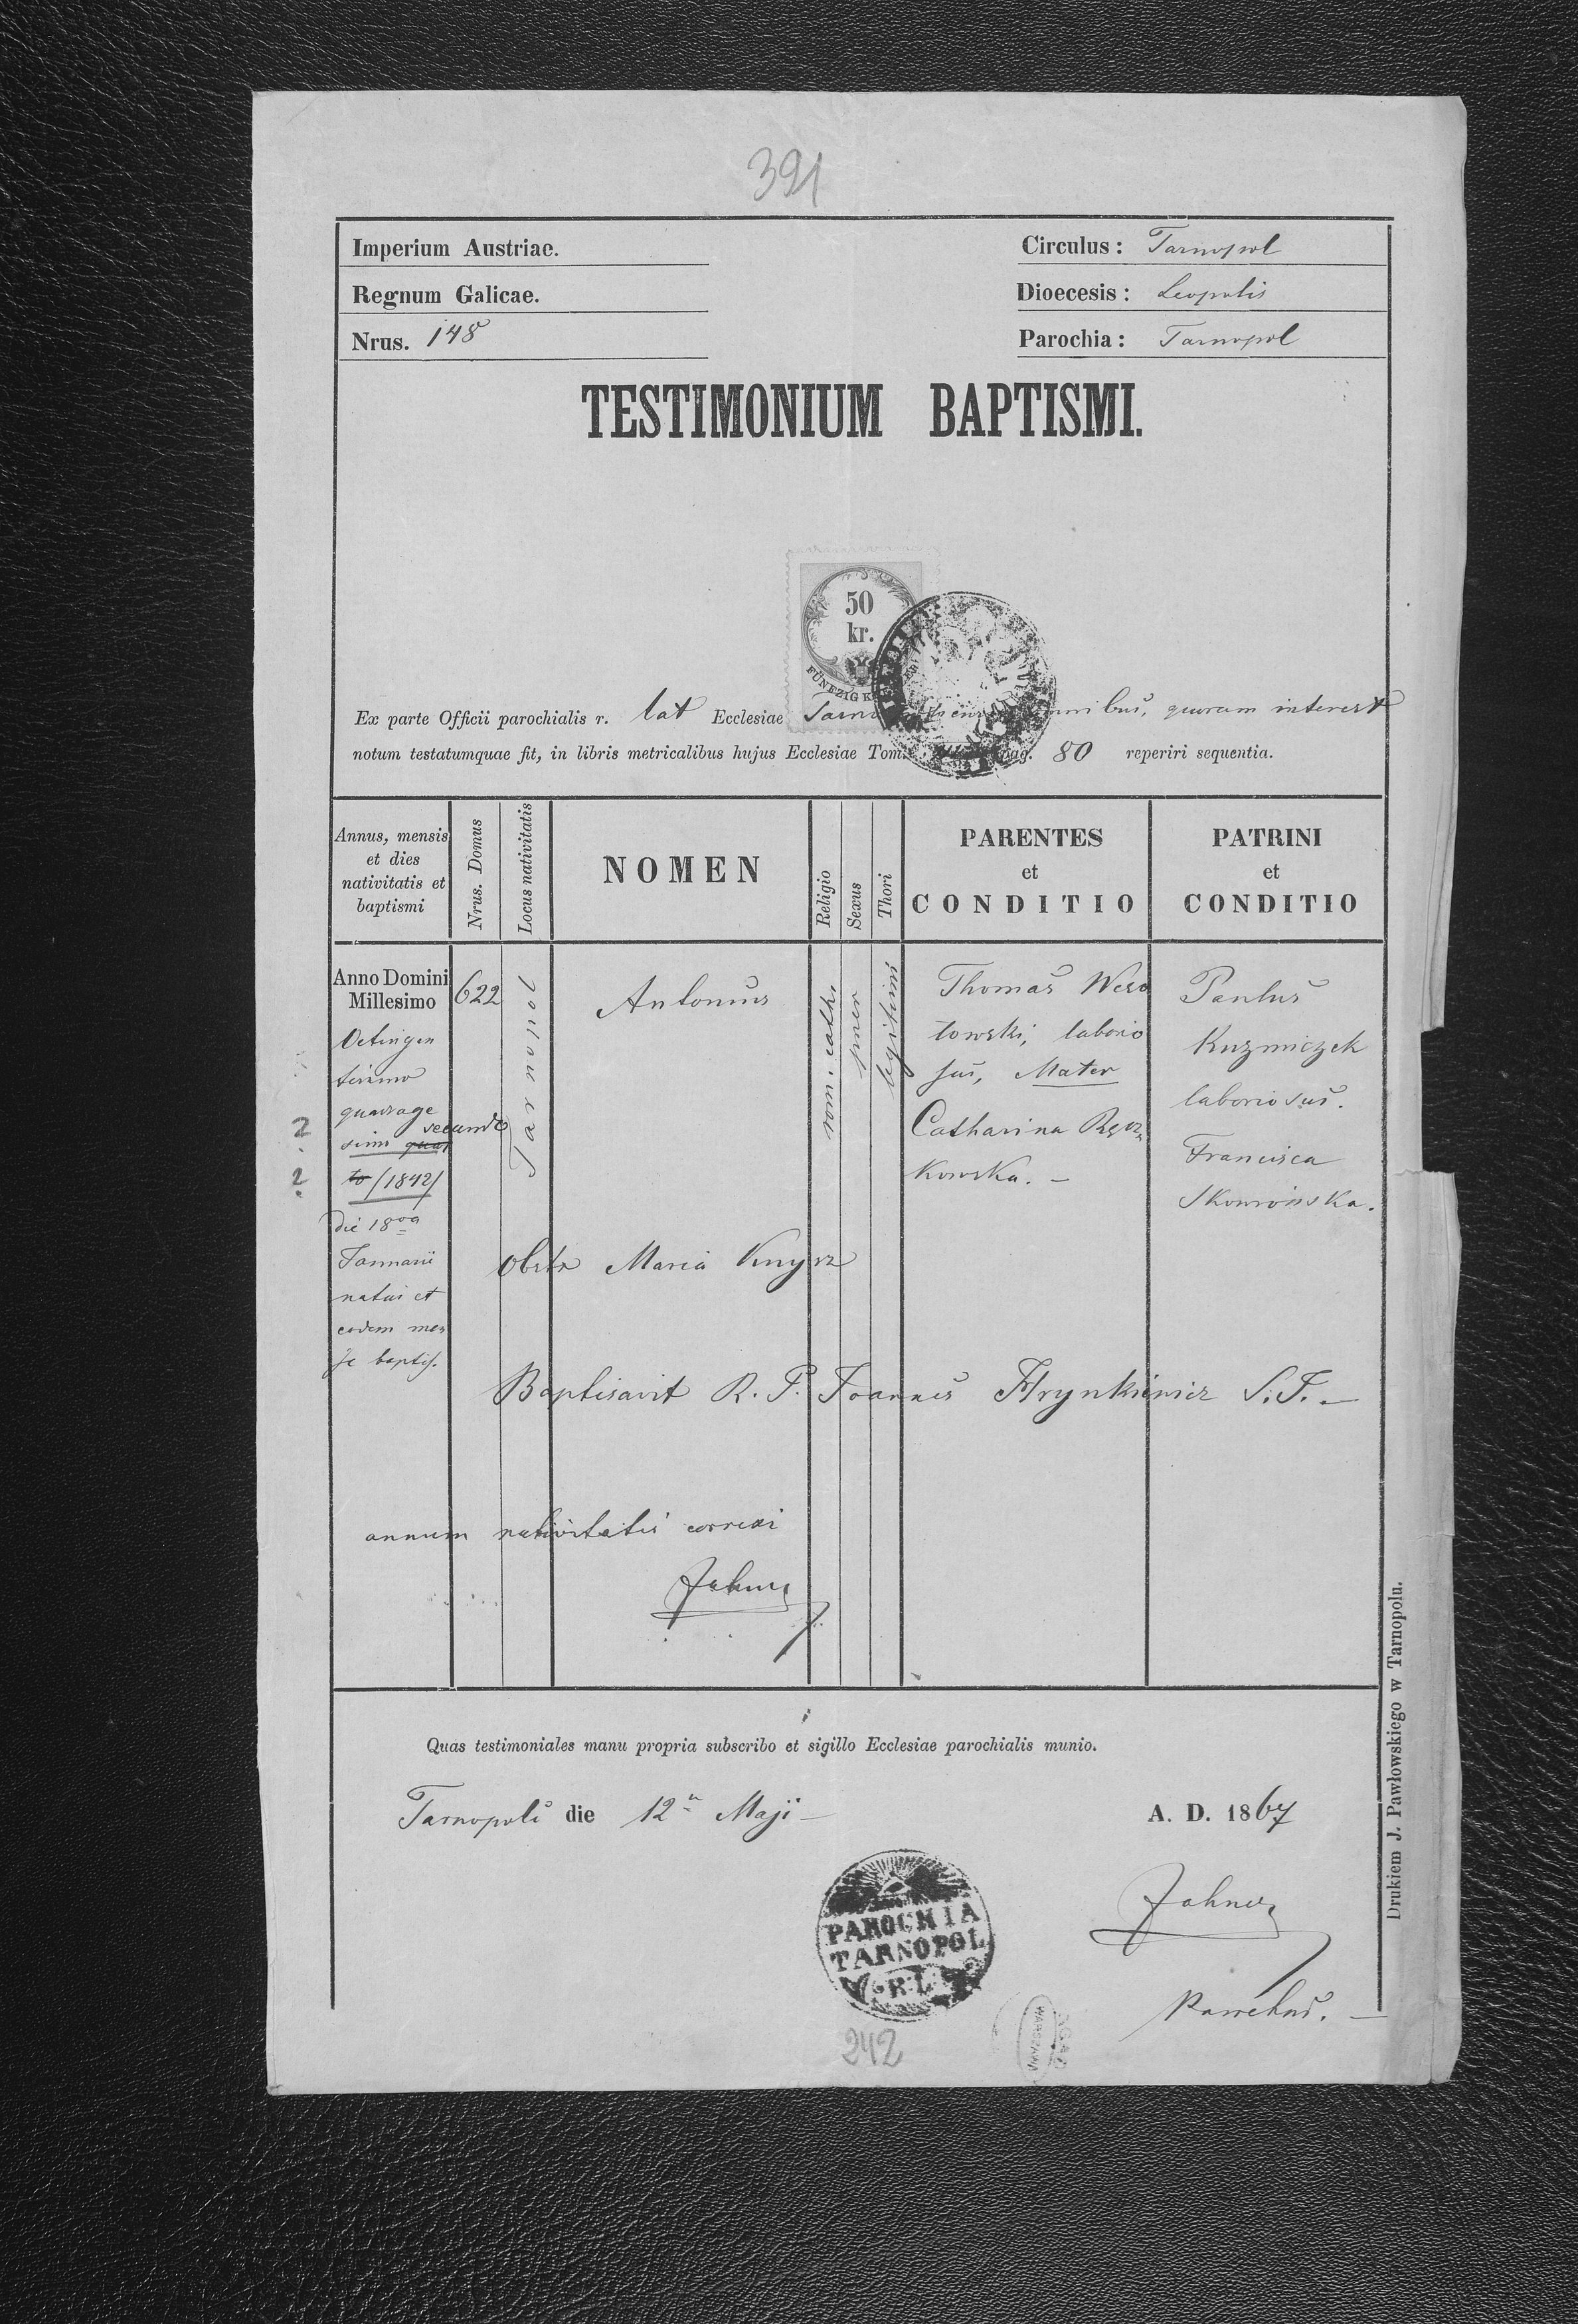 391
Imperium Austriae.
Circulus: Tarnopol
Regnum Galicae.
Dioecesis: Leopolis
Nrus. 148
Parochia: Tarnopol
TESTIMONIUM BAPTISMI.
50
kr.
FÜNFZIG K
Ex parte Officii parochialis r. lat Ecclesiae omnibus, quorum interest
notum testatumquae fit, in libris metricalibus hujus Ecclesiae Tom. pag. 80 reperiri sequentia.
Annus, mensis
et dies
nativitatis et
baptismi
Nrus. Domus
Locus nativitatis
NOMEN
Religio
Sexus
Thori
PARENTES
et
CONDITIO
PATRINI
et
CONDITIO
Anno Domini
Millesimo
Octingen
tesimo
quadrage
secundo
simo quar
to /1842/
die 18va
Januarii
natus et
eodem men
se baptis.
2
2
622
Tarnopol
Antonius
rom. cath.
puer
legitimi
Thomas Weso
łowski, laborio
sus, Mater
Catharina
kowska. –
Paulus
Kuzmiczek
laboriosus.
Francisca
Obstx Maria
Baptisavit R. P. Joannes Hrynkiewicz S. J. –
annum nativitatis correxi
Quas testimoniales manu propria subscribo et sigillo Ecclesiae parochialis munio.
Tarnopoli die 12a Maji – A. D. 1867
PAROCHIA
TARNOPOL
R.L.
Parochus. –
242
AGAD
WARSZAWA
Drukiem J. Pawłowskiego w Tarnopolu.